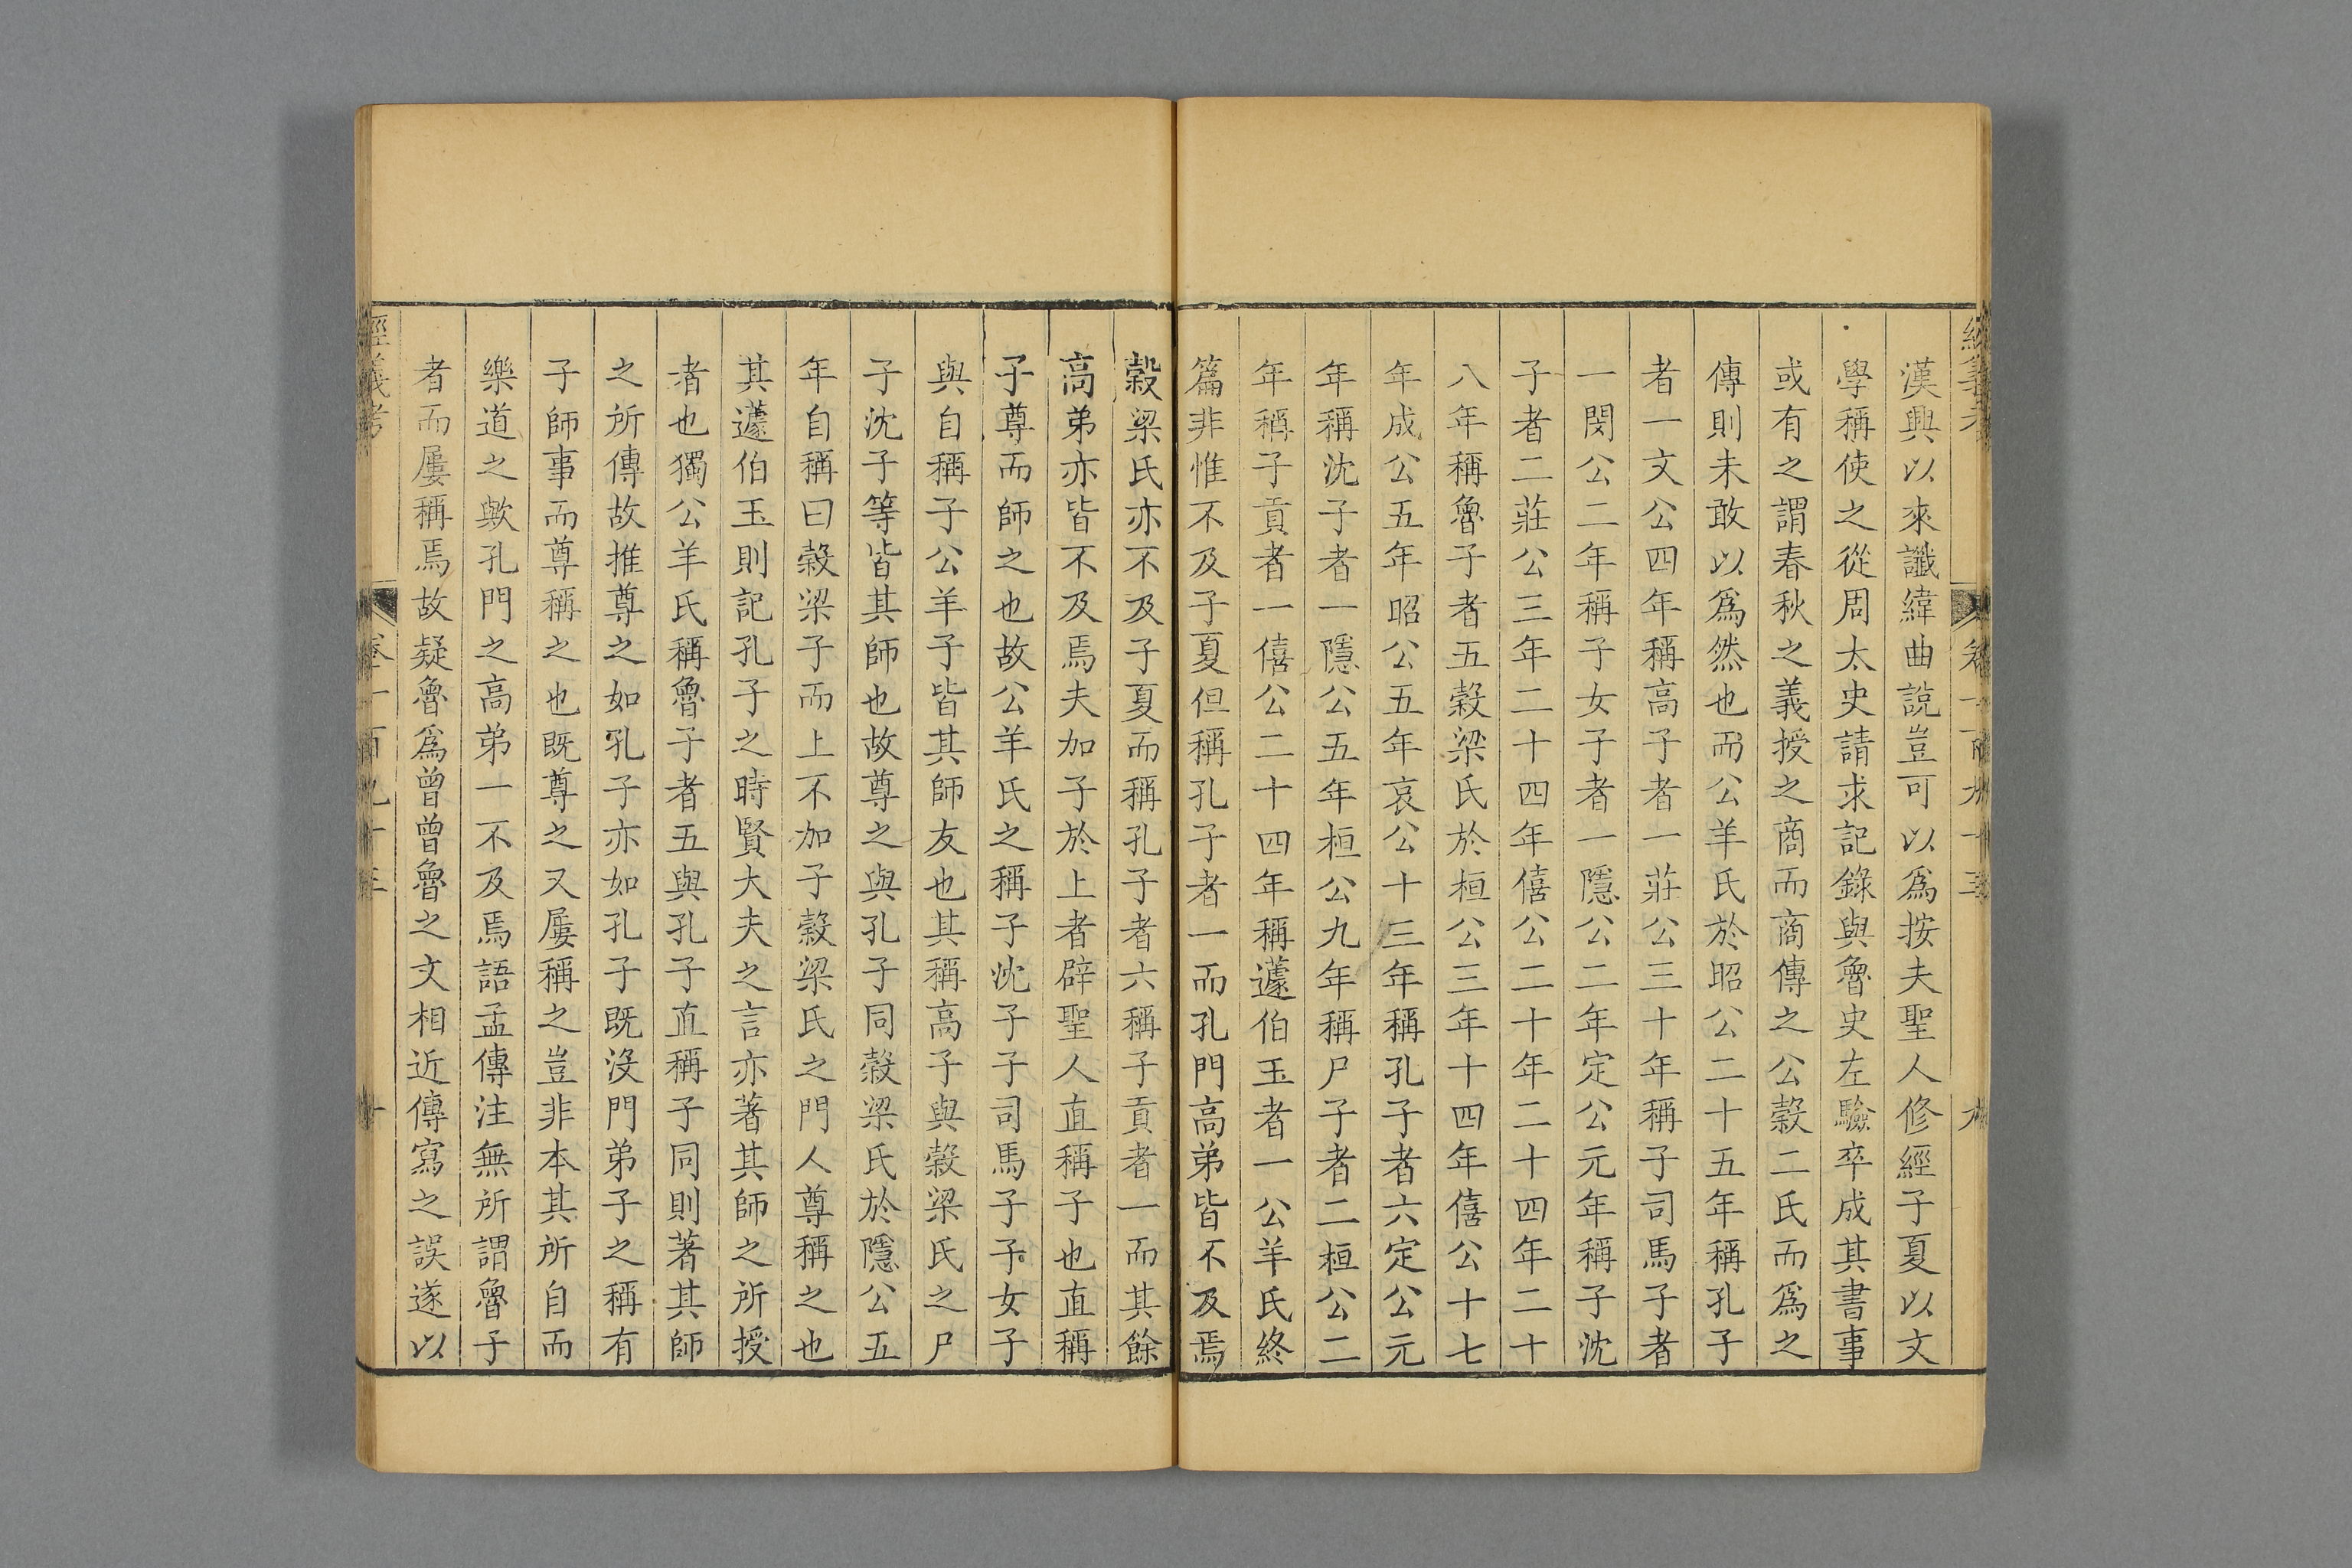 漢興以來讖緯曲說豈可以爲按夫聖人修經子夏以文
學稱使之從周太史請求記錄與魯史左驗卒成其書事
或有之謂春秋之義授之商而商傳之公穀二氏而爲之
傳則未敢以爲然也而公羊氏於昭公二十五年稱孔子
者一文公四年稱高子者一莊公三十年稱子司馬子者
一閔公二年稱子女子者一隱公二年定公元年稱子沈
子者二莊公三年二十四年僖公二十年二十四年二十
八年稱魯子者五穀梁氏於桓公三年十四年僖公十七
年成公五年昭公五年哀公十三年稱孔子者六定公元
年稱沈子者一隱公五年桓公九年稱尸子者二桓公二
年稱子貢者一僖公二十四年稱蘧伯玉者一公羊氏終
篇非惟不及子夏但稱孔子者一而孔門高弟皆不及焉
穀梁氏亦不及子夏而稱孔子者六稱子貢者一而其餘
高弟亦皆不及焉夫加子於上者辟聖人直稱子也直稱
子尊而師之也故公羊氏之稱子沈子子司馬子子女子
與自稱子公羊子皆其師友也其稱高子與穀梁氏之尸
子沈子等皆其師也故尊之與孔子同穀梁氏於隱公五
年自稱曰穀梁子而上不加子穀梁氏之門人尊稱之也
其蘧伯玉則記孔子之時賢大夫之言亦著其師之所授
者也獨公羊氏稱魯子者五與孔子直稱子同則著其師
之所傳故推尊之如孔子亦如孔子既沒門弟子之稱有
子師事而尊稱之也既尊之又屢稱之豈非本其所自而
樂道之歟孔門之高弟一不及焉語孟傳注無所謂魯子
者而屢稱焉故疑魯爲曾曾魯之文相近傳寫之誤遂以
經義考 卷一百九十三 十